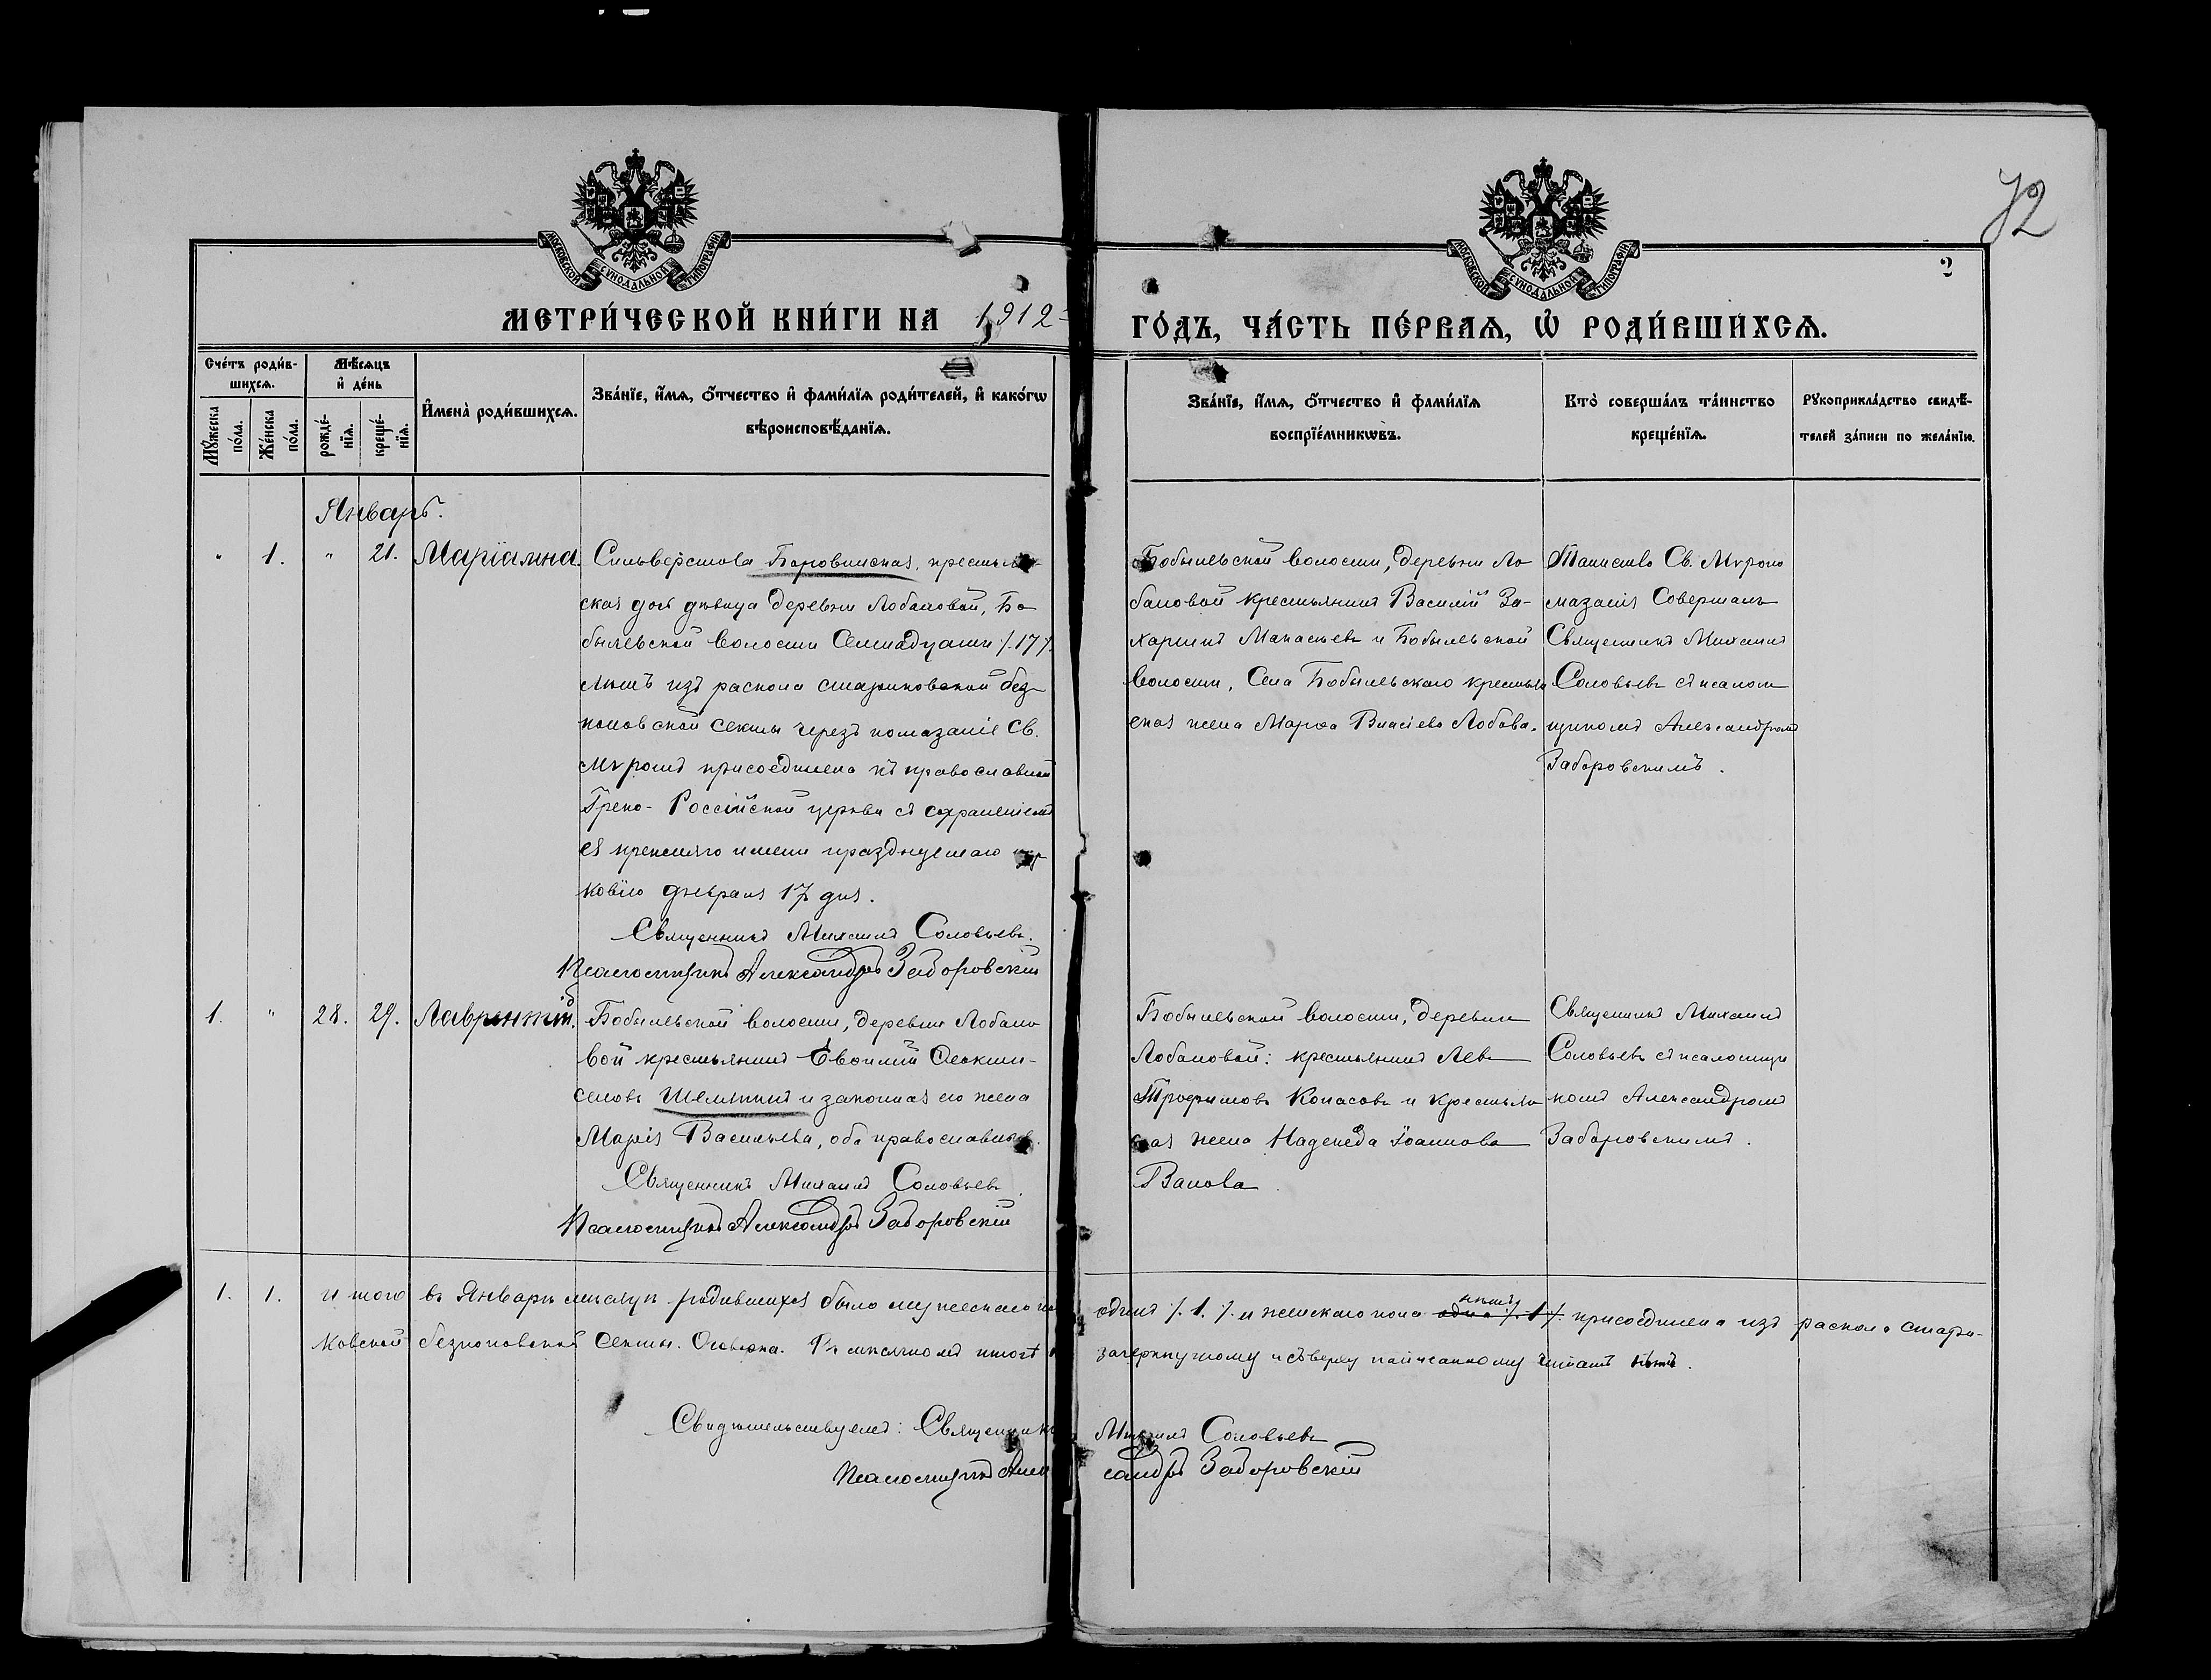 72
МОСКОВСКОЙ СѴНОДАЛЬНОЙ ТИПОГРАФІИ
МОСКОВСКОЙ СѴНОДАЛЬНОЙ ТИПОГРАФІИ
2
МЕТРИ́ЧЕСКОЙ КНИ́ГИ НА 1912 ГО́ДЪ, ЧА́СТЬ ПЕ́РВАѦ, Ѽ РОДИ́ВШИХСѦ.
Сче́тъ роди́в-
шихсѧ.
Мꙋжеска по́ла.
Же́нска по́ла.
Мѣ́сѧцъ
и҆ де́нь
рожде́-
нїѧ.
креще́-
нїѧ.
И҆мена̀ роди́вшихсѧ.
Зва́нїе, и҆́мѧ, ѻ҆́тчество и҆ фами́лїѧ роди́телей, и҆ како́гѡ
вѣроисповѣ́данїѧ.
Зва́нїе, и҆́мѧ, ѻ҆́тчество и҆ фами́лїѧ
воспрїе́мникѡвъ.
Кто̀ соверша́лъ та́инство
креще́нїѧ.
Рꙋкоприкла́дство свидѣ́-
телей за́писи по жела́нїю.
Январь.
" 1. " 21. Маріамна.
Сильверстова Боровинская, крестьян-
ская дочь дѣвица деревни Лобановой, Бо
быльевской волости Семнадцати /.17./
лѣтъ изъ раскола стариковской без-
поповской секты чрезъ помазаніе Св.
Мѵромъ присоединена къ православной
Греко-Россійской церкви съ сохраненіемъ
ея прежняго имени празднуемаго
ковію февраля 17 дня.
Священникъ Михаилъ Соловьевъ.
Псаломщикъ Александръ Заборовскій
Бобыльевской волости, деревни Ло
бановой крестьянинъ Василій За-
харинъ и Бобыльевской
волости, Села Бобыльевскаго крестьян
ская жена Марѳа Власіева Лобова.
Таинство Св. Мѵропо
мазанія Совершалъ
Священникъ Михаилъ
Соловьевъ съ псалом
щикомъ Александромъ
Заборовскимъ.
1. " 28. 29. Лаврентій.
Бобыльевской волости, деревни Лобано
вой крестьянинъ Евѳимій Ѳеокти-
стовъ Шелыкинъ и законная его жена
Марія Васильева, оба православные.
Священникъ Михаилъ Соловьевъ
Псаломщикъ Александръ Заборовскій
Бобыльевской волости, деревни
Лобановой: крестьянинъ Левъ
Трофимовъ Копасовъ и крестьян
ская жена Надежда Іоаннова
Ванова.
Священникъ Михаилъ
Соловьевъ съ псаломщи
комъ Александромъ
Заборовскимъ.
1. 1. Итого въ Январѣ мѣсяцѣ родившихся было мужескаго по одинъ /.1./ и женскаго пола одна /.1./ нѣтъ присоединена изъ раскола стари-
ковской безпоповской секты. Оговорка. Въ мѣсячномъ итогѣ зачеркнутому и сверху написанному читать нѣтъ.
Свидѣтельствуемъ: Священникъ Михаилъ Соловьевъ
Псаломщикъ Александръ Заборовскій